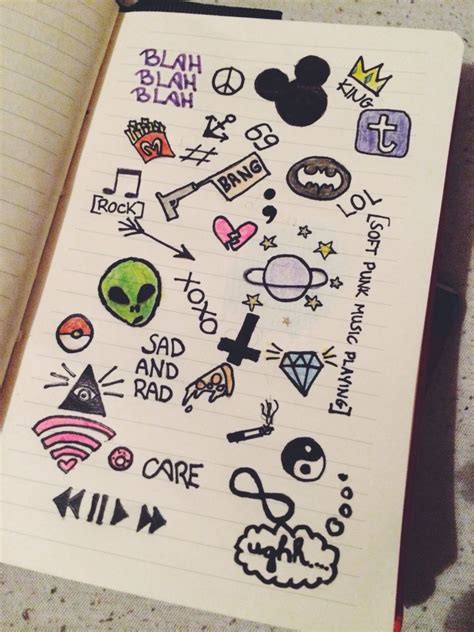 BLAH
BLAH
BLAH
KING
t
M
#
69
BANG
[ROCK]
LOL
[SOFT PUNK MUSIC PLAYING]
XOXO
SAD
AND
RAD
CARE
ughh...